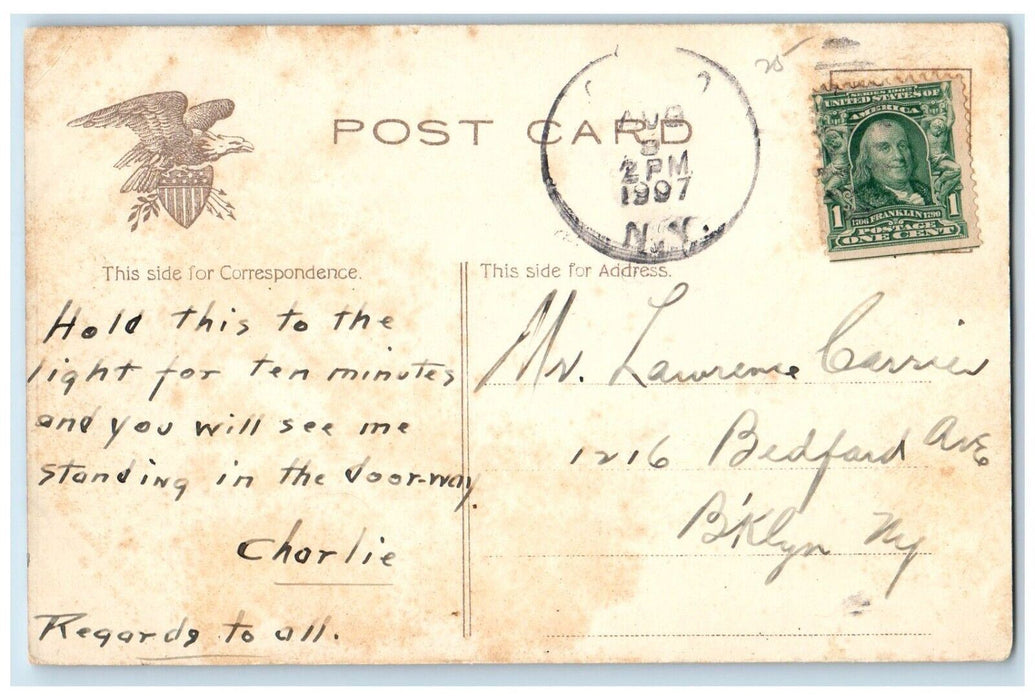 POST CARD
AUG
2 PM
1907
N.Y.
25
SERIES 1902
UNITED STATES OF
AMERICA
1 1706 FRANKLIN 1790 1
POSTAGE
ONE CENT
This side for Correspondence.
This side for Address.
Hold this to the
light for ten minutes
and you will see me
standing in the door-way.
Charlie
Regards to all.
Mr. Lawrence Carrier
1216 Bedford Ave
B'klyn Ny